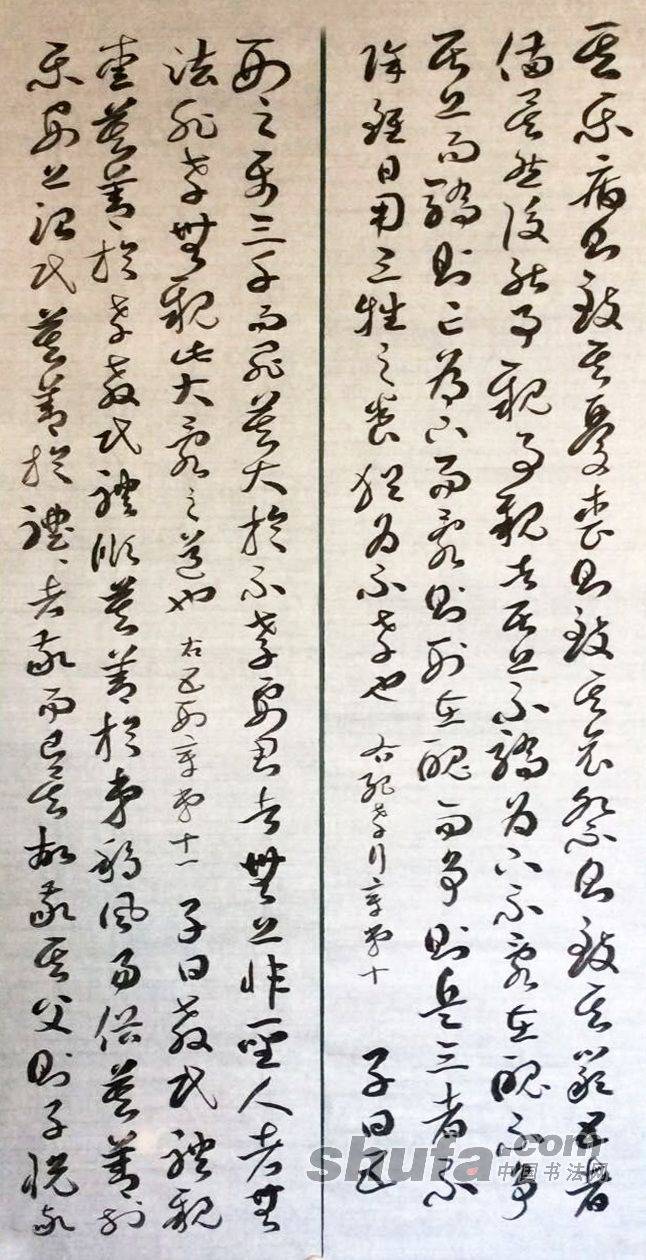 其樂病則致其憂喪則致其哀祭則致其嚴五者
備矣然後能事親事親者居上不驕為下不亂在醜不爭
居上而驕則亡為下而亂則刑在醜而爭則兵三者不
除雖日用三牲之養猶為不孝也 右紀孝行章第十 子曰五
刑之屬三千而罪莫大於不孝要君者無上非聖人者無
法非孝無親此大亂之道也 右五刑章第十一 子曰教民禮親
愛莫善於孝教民禮順莫善於弟移風易俗莫善於
樂安上治民莫善於禮〻者敬而已矣故敬其父則子悅敬
shufa.com
中国书法网